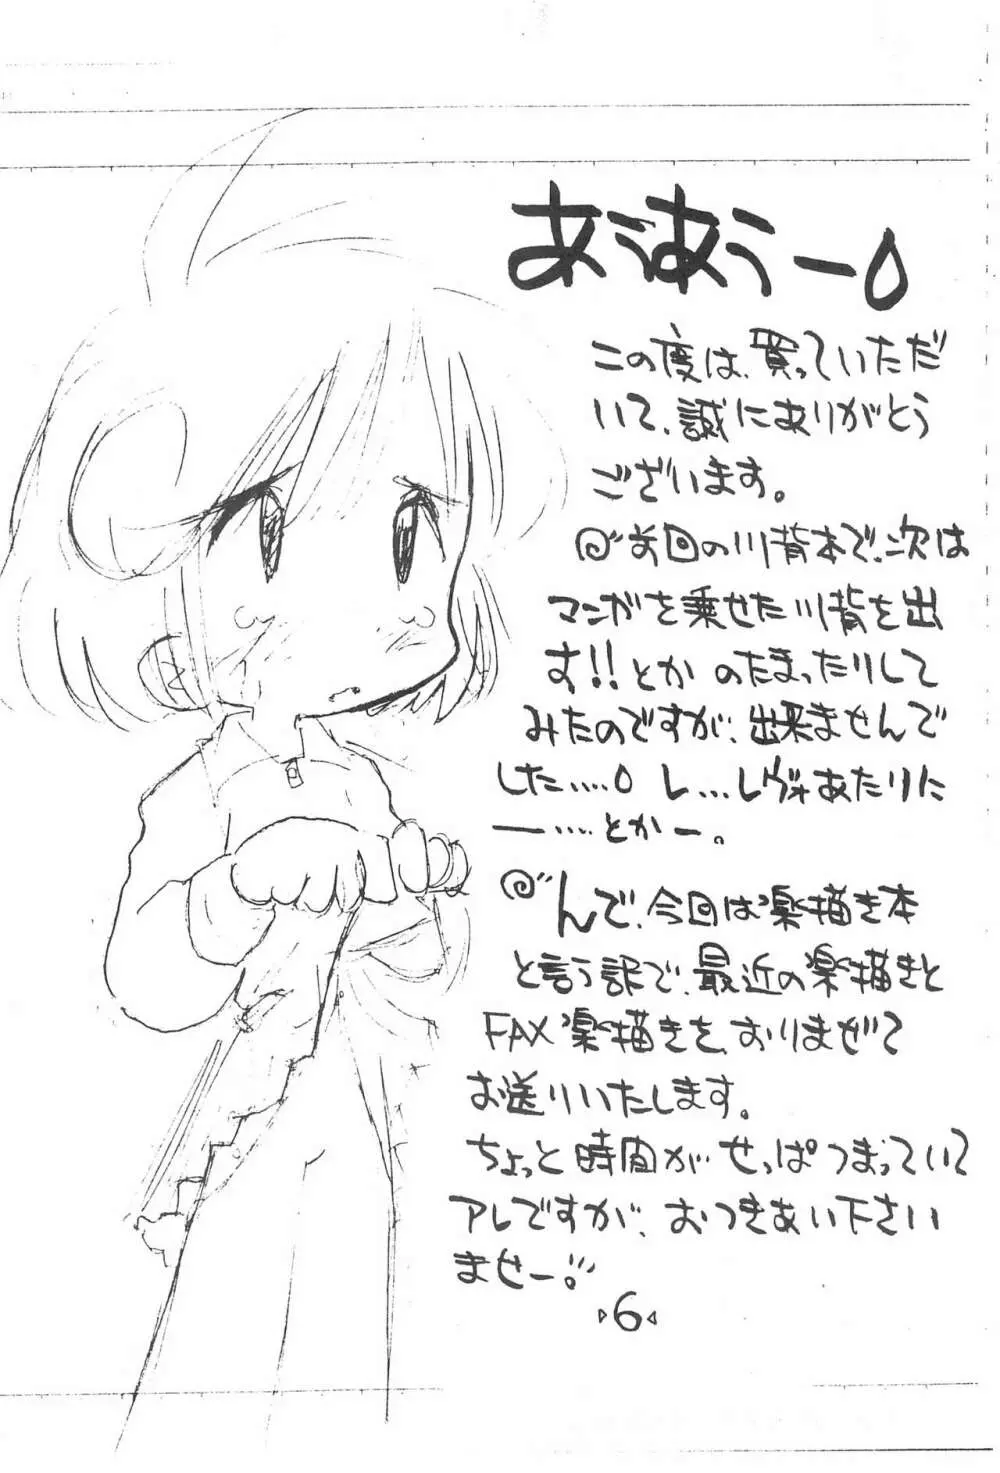 あうあうー
この度は、買っていただ
いて、誠にありがとう
ございます。
前回の川背本で、次は
マンガを乗せた川背を出
す!!とか のたまったりして
みたのですが、出来ませんで
した…‥ レ…レヴォあたりに
ー…‥とかー。
んで、今回は楽描き本
と言う訳で、最近の楽描きと
FAX楽描きを、おりまぜて
お送りいたします。
ちょっと時間がせっぱつまっていて
アレですが、おつきあい下さい
ませー。
6